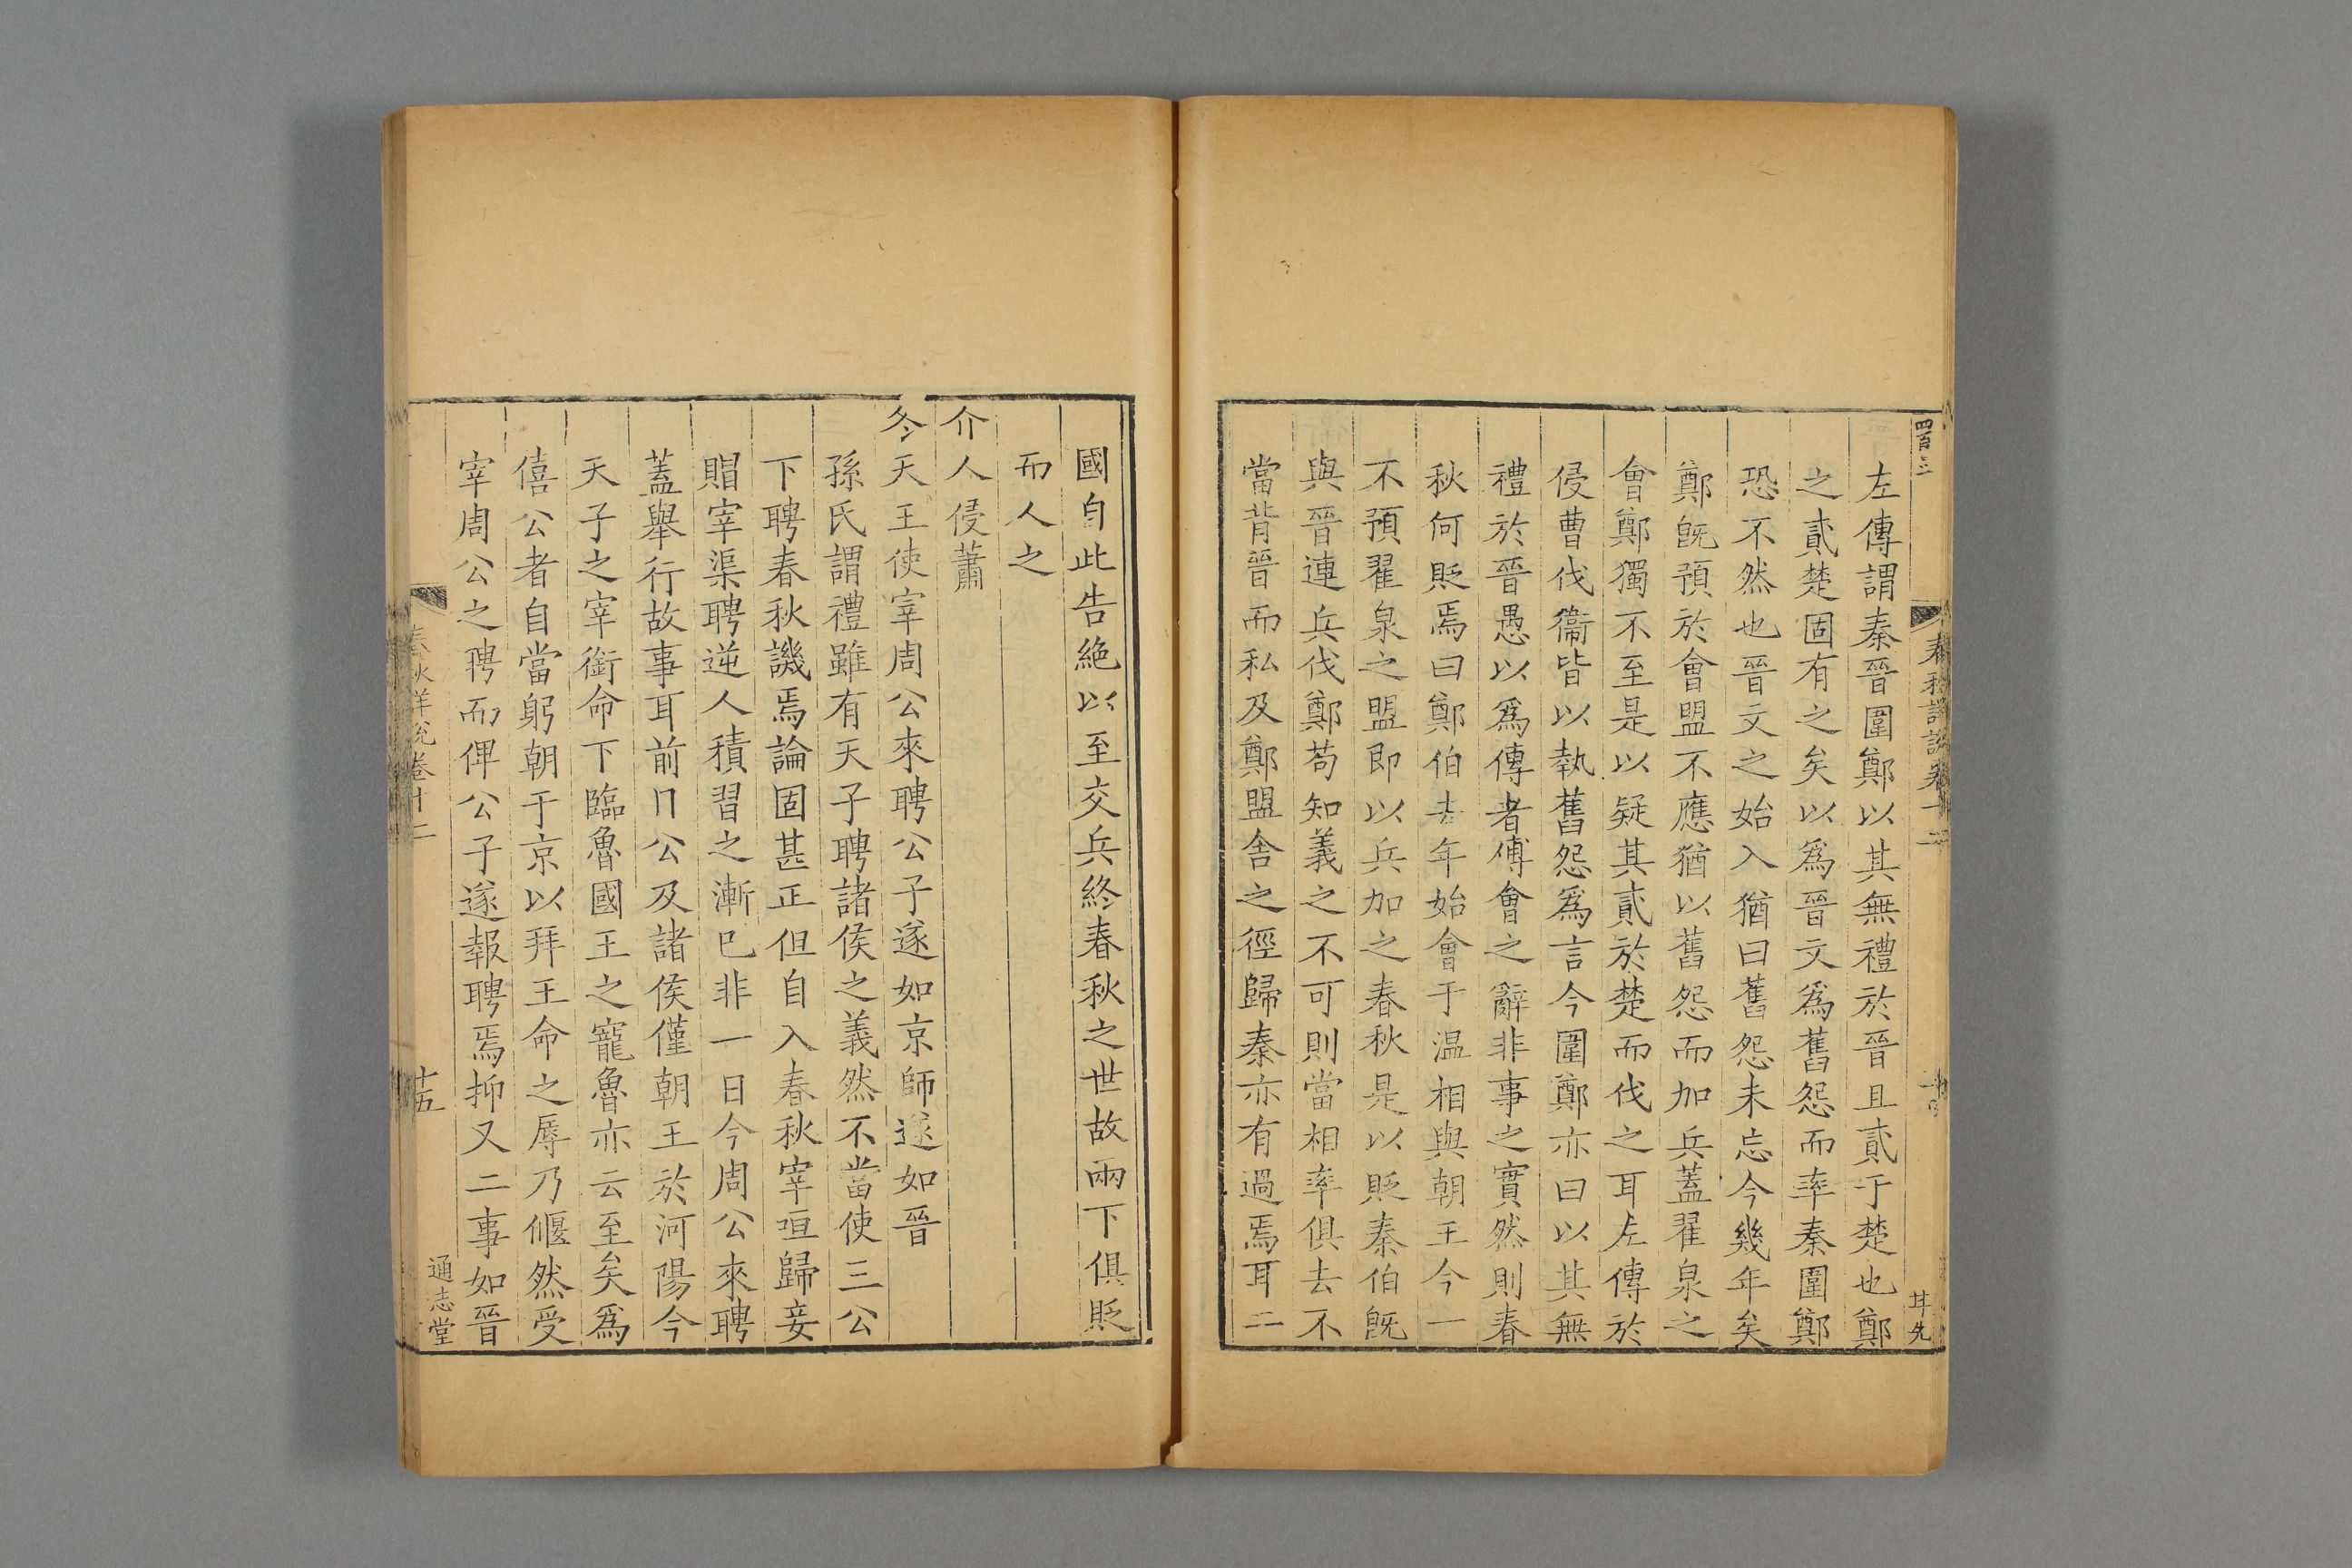 四百三
春秋詳說卷十二
左傳謂秦晉圍鄭以其無禮於晉且貳于楚也鄭
之貳楚固有之矣以爲晉文爲舊怨而率秦圍鄭
恐不然也晉文之始入猶曰舊怨未忘今幾年矣
鄭旣預於會盟不應猶以舊怨而加兵蓋翟泉之
會鄭獨不至是以疑其貳於楚而伐之耳左傳於
侵曹伐衞皆以執舊怨爲言今圍鄭亦曰以其無
禮於晉愚以爲傳者傅會之辭非事之實然則春
秋何貶焉曰鄭伯去年始會于温相與朝王今一
不預翟泉之盟即以兵加之春秋是以貶秦伯旣
與晉連兵伐鄭苟知義之不可則當相率俱去不
當背晉而私及鄭盟舍之徑歸秦亦有過焉耳二
國自此告絶以至交兵終春秋之世故兩下俱貶
而人之
介人侵蕭
冬天王使宰周公來聘公子遂如京師遂如晉
孫氏謂禮雖有天子聘諸侯之義然不當使三公
下聘春秋譏焉論固甚正但自入春秋宰咺歸妾
賵宰渠聘逆人積習之漸已非一日今周公來聘
蓋舉行故事耳前月公及諸侯僅朝王於河陽今
天子之宰銜命下臨魯國王之寵魯亦云至矣爲
僖公者自當躬朝于京以拜王命之辱乃偃然受
宰周公之聘而俾公子遂報聘焉抑又二事如晉
春秋詳說卷十二
十五
通志堂